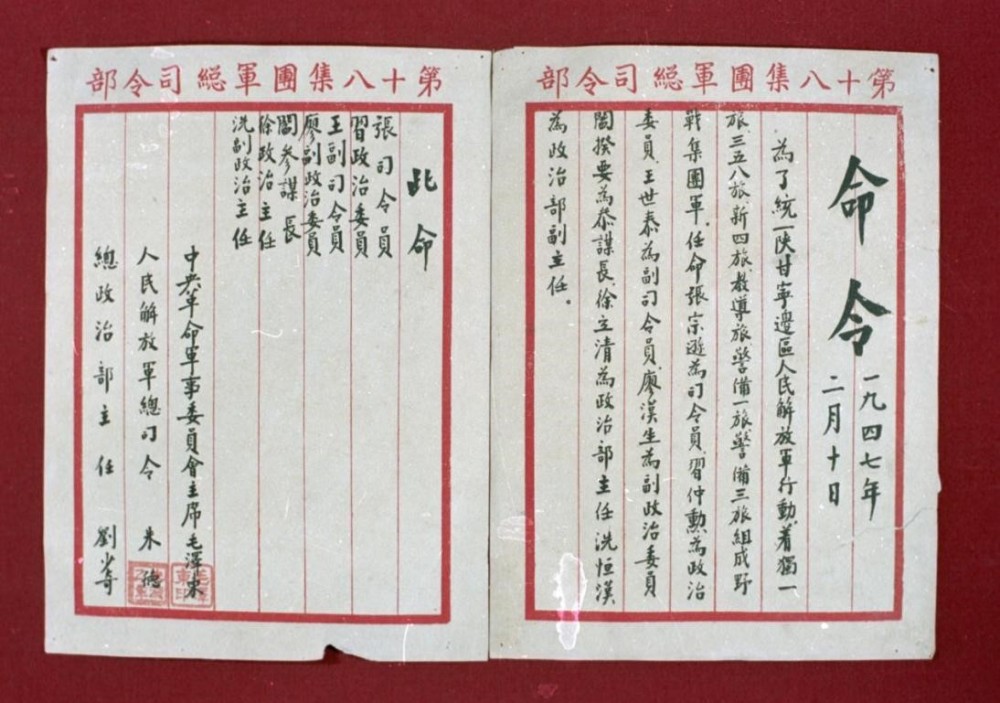 第十八集團軍総司令部
命令
一九四七年
二月十日
為了統一陝甘寧邊區人民解放軍行動，着獨一
旅、三五八旅、新四旅、教導旅、警備一旅、警備三旅組成野
戰集團軍。任命張宗遜為司令員，習仲勲為政治
委員，王世泰為副司令員，廖漢生為副政治委員，
閻揆要為叅謀長，徐立清為政治部主任，冼恒漢
為政治部副主任。
第十八集團軍総司令部
此命
張司令員
習政治委員
王副司令員
廖副政治委員
閻參謀長
徐政治主任
冼副政治主任
中央革命軍事委員會主席毛澤東
人民解放軍總司令 朱德
總政治部主任 劉少奇